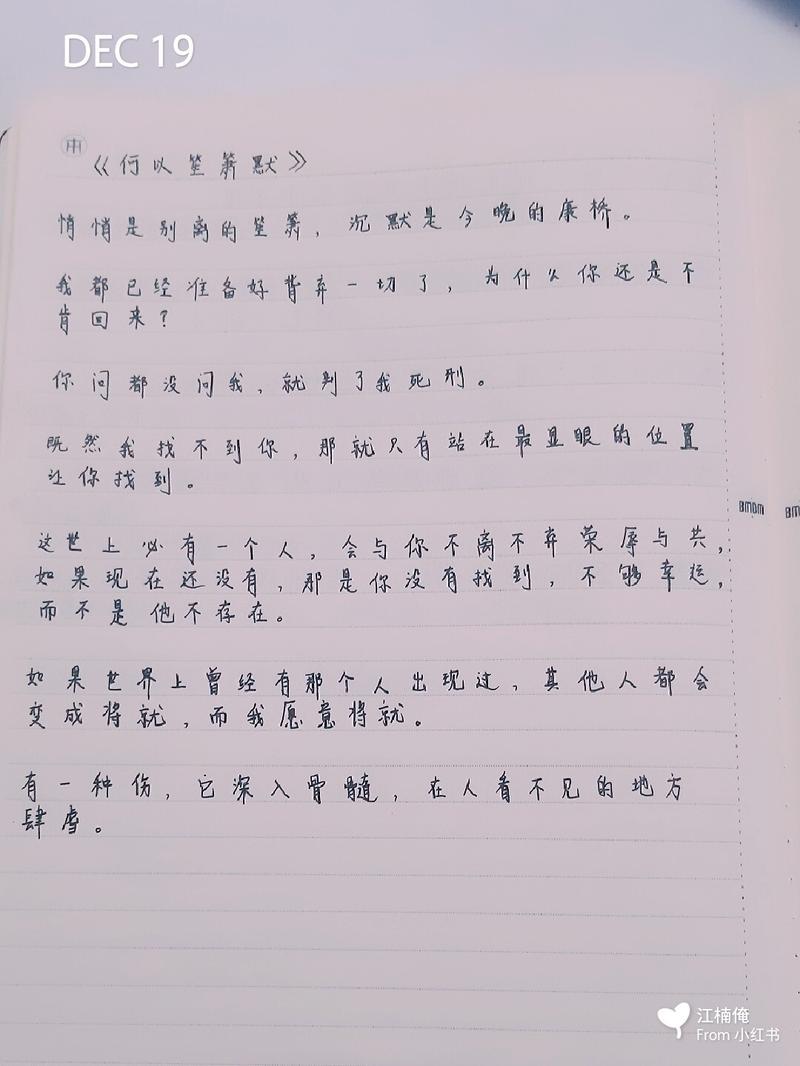 DEC 19
《何以笙箫默》
悄悄是别离的笙箫，沉默是今晚的康桥。
我都已经准备好背弃一切了，为什么你还是不
肯回来？
你问都没问我，就判了我死刑。
既然我找不到你，那就只有站在最显眼的位置
让你找到。
这世上必有一个人，会与你不离不弃荣辱与共，
如果现在还没有，那是你没有找到，不够幸运，
而不是他不存在。
如果世界上曾经有那个人出现过，其他人都会
变成将就，而我愿意将就。
有一种伤，它深入骨髓，在人看不见的地方
肆虐。
BMDM
江楠俺
From 小红书